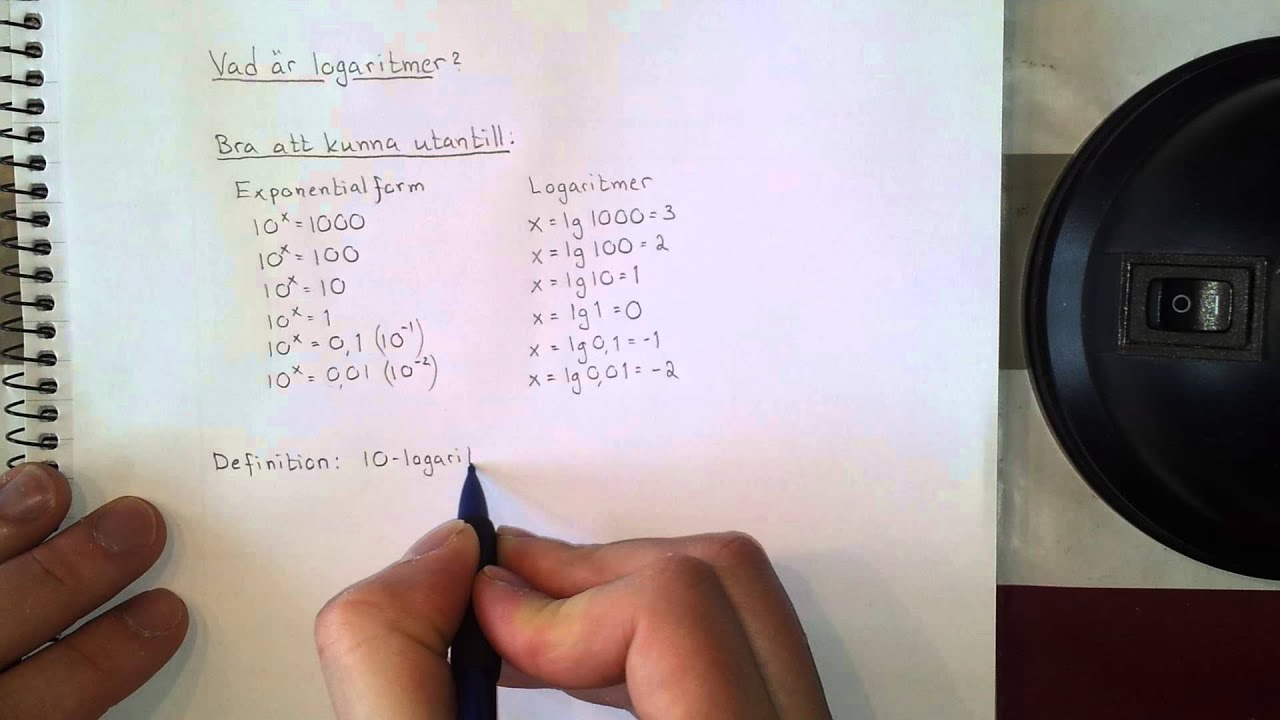 Vad är logaritmer?
Bra att kunna utantill:
Exponentialform Logaritmer
10ˣ = 1000 x = lg 1000 = 3
10ˣ = 100 x = lg 100 = 2
10ˣ = 10 x = lg 10 = 1
10ˣ = 1 x = lg 1 = 0
10ˣ = 0,1 (10⁻¹) x = lg 0,1 = -1
10ˣ = 0,01 (10⁻²) x = lg 0,01 = -2
Definition: 10-logari